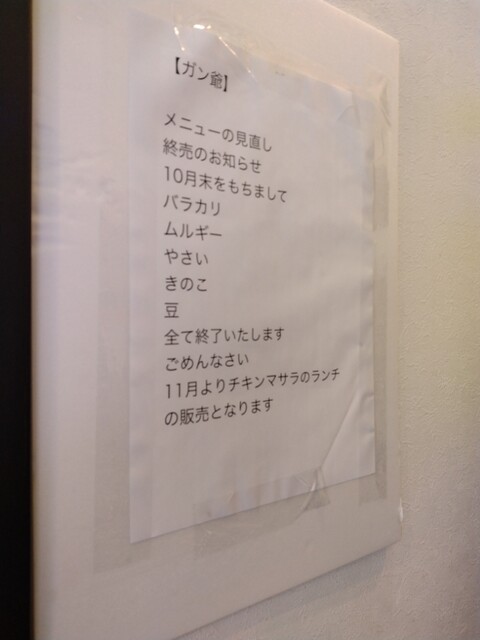 【ガン爺】
メニューの見直し
終売のお知らせ
10月末をもちまして
バラカリ
ムルギー
やさい
きのこ
豆
全て終了いたします
ごめんなさい
11月よりチキンマサラのランチ
の販売となります